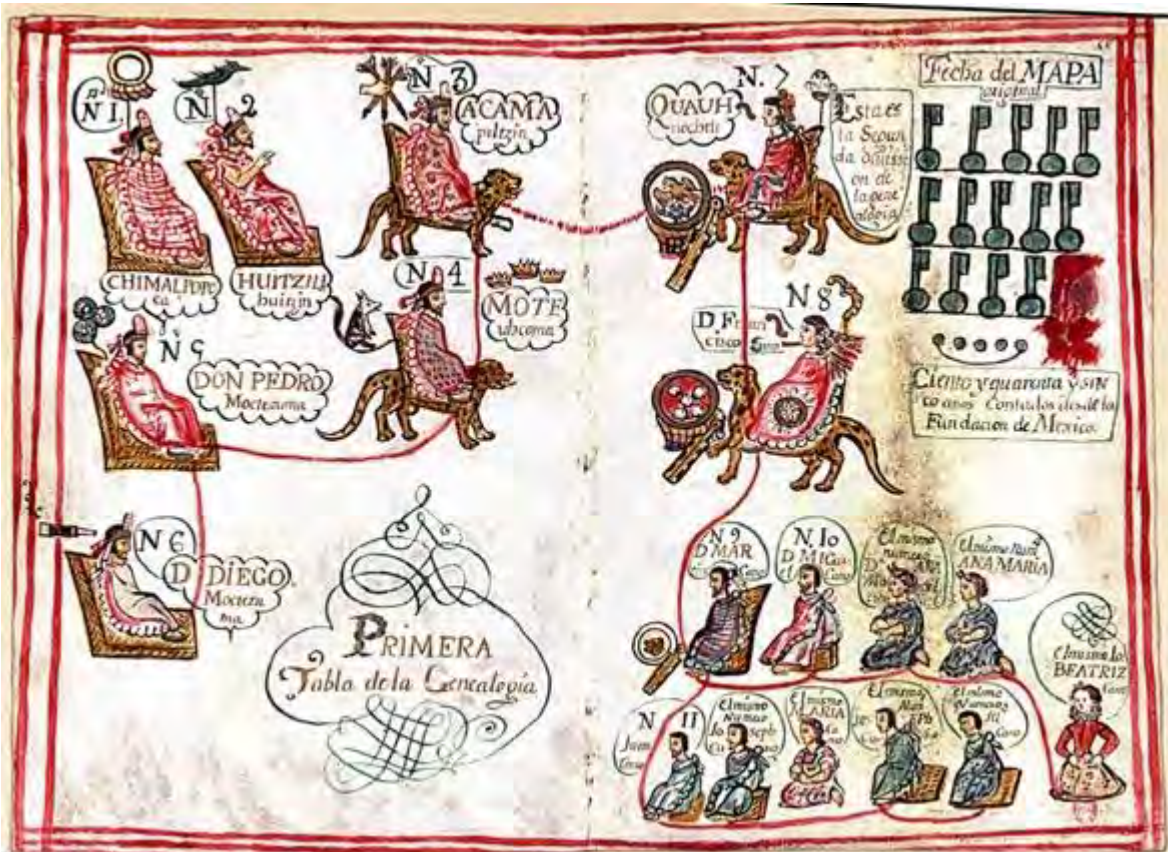 N 1
CHIMALPOPO
ca
N 2
HUITZILI
huitzin
N. 3
ACAMA
pitzin
N. 4
MOTE
uhcoma
N 5
DON PEDRO
Moctezuma
N 6
D. DIEGO.
Moctezu
ma
PRIMERA
Tabla de la Genealogia
N. 7
QUAUH
nochtli
Esta es
la Segun
da
on de
la gene
alogia
N 8
D. Fran
cisco
Fecha del MAPA
original
Ciento y quarenta y sin
co anos Contados desde la
Fundacion de Mexico.
N 9
D. MAR
Cano
N. 10
D. MIGu
el Cano
El mismo
numero
D. ANA
El mismo Num
ANA MARIA
El mismo 10
BEATRIZ
N 11
Juan
El mismo
Numero
Joseph
Ca no
El mismo
MARIA
Ca
no
El mismo
Num
El mismo
Numero 11
Cano